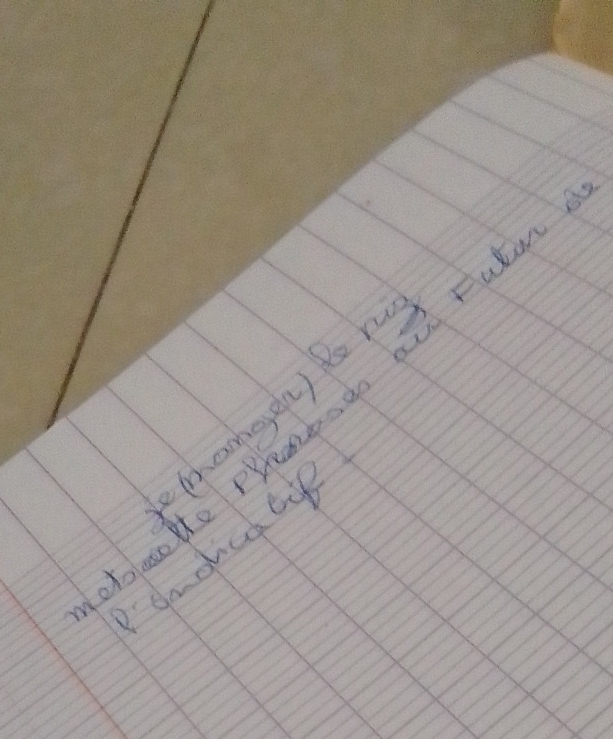 je (manger) le riz
mets cette phrases au Futur de
l'indicatif.